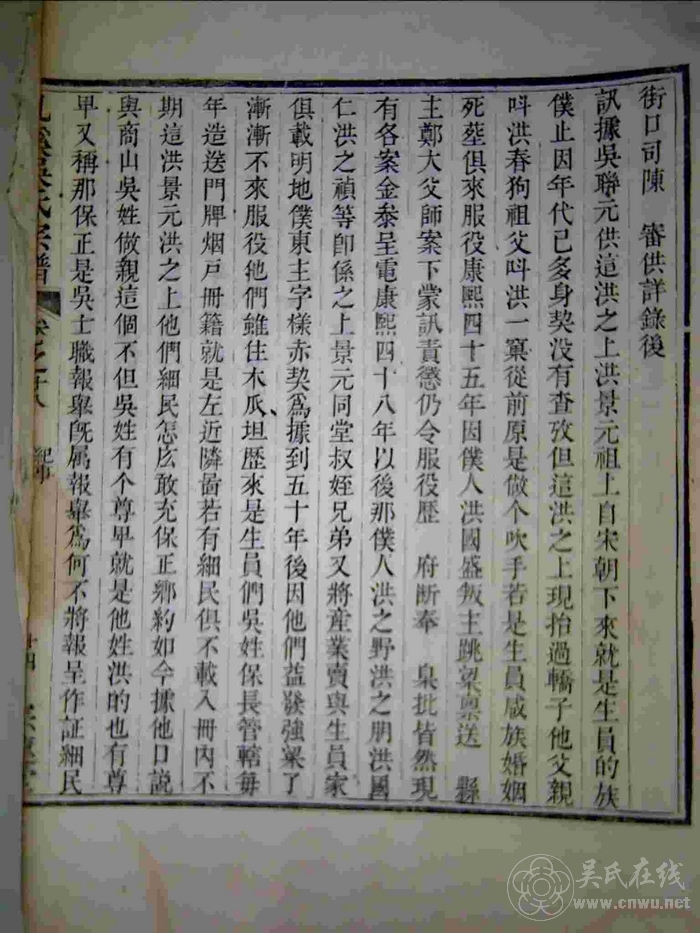 街口司陳　審供詳錄後
訊據吳聯元供這洪之上洪景元祖上自宋朝下來就是生員的族
僕止因年代已多身契没有查攷但這洪之上現抬過轎子他父親
呌洪春狗祖父呌洪一窠從前原是做个吹手若是生員戚族婚姻
死塟俱來服役康熙四十五年因僕人洪國盛叛主跳梁禀送　縣
主鄭大父師案下蒙訊責懲仍令服役歷　府断奉　臬批皆然現
有各案金叅呈電康熙四十八年以後那僕人洪之野洪之朋洪國
仁洪之禎等卽係之上景元同堂叔姪兄弟又將産業賣與生員家
俱載明地僕東主字樣赤契爲據到五十年後因他們益發強粱了
漸漸不來服役他們雖住木瓜坦歷來是生員們吳姓保長管轄每
年造送門牌烟戸冊籍就是左近隣啚若有細民俱不載入冊內不
期這洪景元洪之上他們細民怎庅敢充保正鄕約如今據他口說
與商山吳姓做親這個不但吳姓有个尊卑就是他姓洪的也有尊
卑又稱那保正是吳士職報舉旣属報舉爲何不將報呈作証細民
氏宗譜
吴氏在线
www.cnwu.net